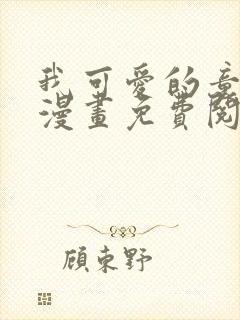 我可愛的
漫畫免費閱
顧東野